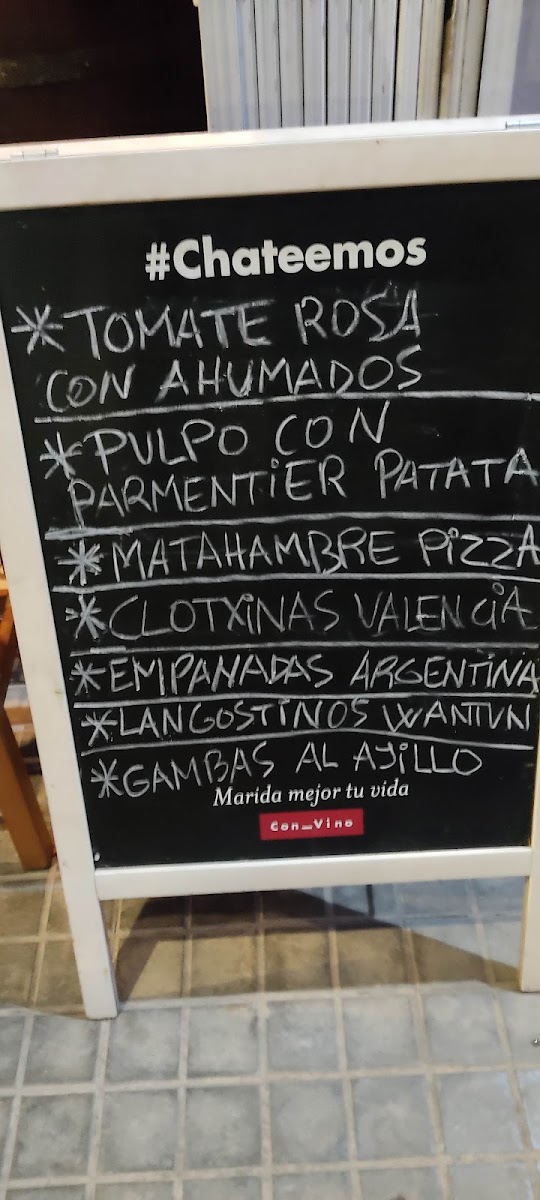 #Chateemos
*TOMATE ROSA
CON AHUMADOS
*PULPO CON
PARMENTIER PATATA
*MATAHAMBRE PIZZA
*CLOTXINAS VALENCIA
*EMPANADAS ARGENTINA
*LANGOSTINOS WANTUN
*GAMBAS AL AJILLO
Marida mejor tu vida
Con_Vino